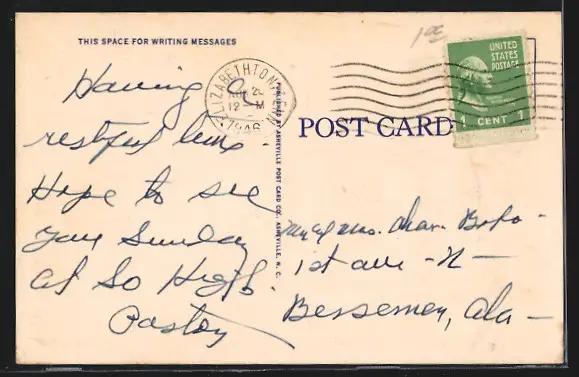 1 00
THIS SPACE FOR WRITING MESSAGES
Having a
restful time.
Hope to see
you Sunday
at So High.
Pastor
ELIZABETHTON
12 M
1946
PUBLISHED BY ASHEVILLE POST CARD CO., ASHEVILLE, N. C.
UNITED
STATES
POSTAGE
1 CENT 1
POST CARD
Mr & Mrs. Chas.
1st ave - N -
Bessemer, Ala -